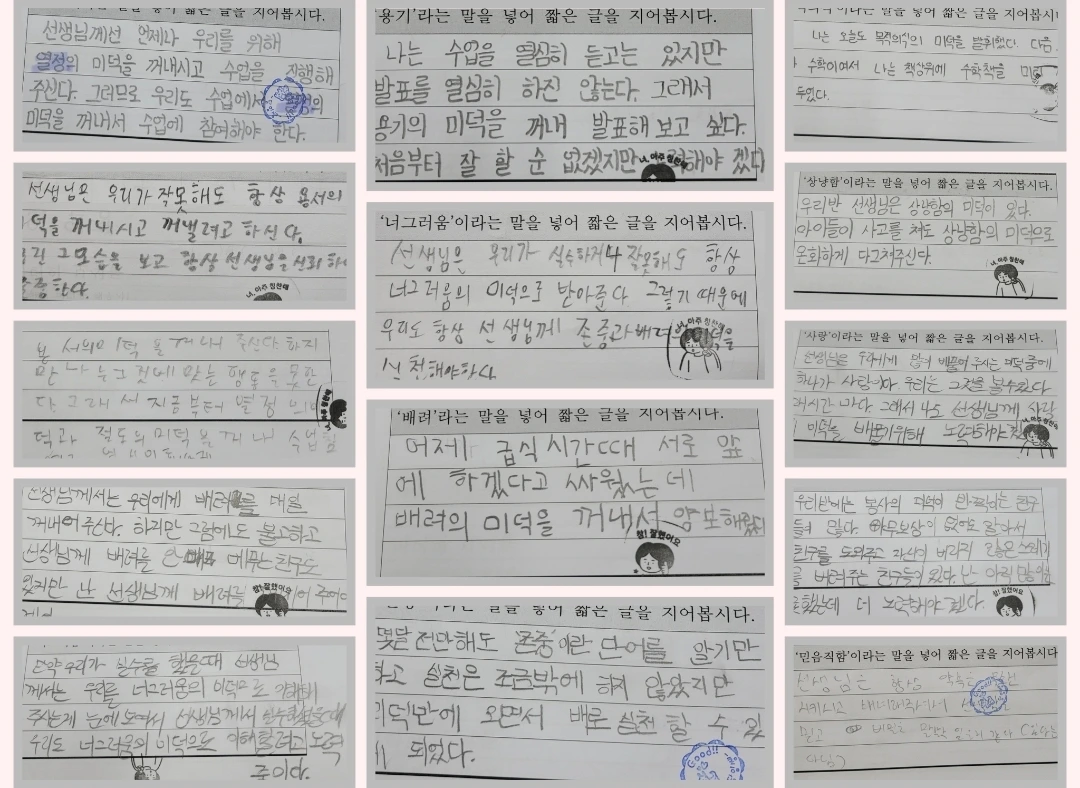 짧은 글을 지어봅시다.
선생님께선 언제나 우리를 위해
열정의 미덕을 꺼내시고 수업을 진행해
주신다. 그러므로 우리도 수업에서 열정의
미덕을 꺼내서 수업에 참여해야 한다.
선생님은 우리가 잘못해도 항상 용서의
덕을 꺼내시고 꺼낼려고 하신다.
그모습을 보고 항상 선생님을 신뢰하
존중한다.
용서의미덕을 꺼내 주신다 하지
만 나는 그것에 맞는 행동을 못한
다. 그래서 지금부터 열정의
덕과 절도의 미덕을 꺼내 수업
선생님께서는 우리에게 배려를 매일
꺼내어주신다. 하지만 그럼에도 불고하고
선생님께 배려를 안 해주는 친구도
있지만 난 선생님께 배려를
만약 우리가 실수를 했을때 선생님
께서는 우리를 너그러움의 미덕으로 이해해
주시는게 눈에 보여서 선생님께서
우리도 너그러움의 미덕으로 이해할려고 노력
중이다.
용기'라는 말을 넣어 짧은 글을 지어봅시다.
나는 수업을 열심히 듣고는 있지만
발표를 열심히 하진 않는다. 그래서
용기의 미덕을 꺼내 발표해 보고 싶다.
처음부터 잘 할 순 없겠지만 해야 겠다
'너그러움'이라는 말을 넣어 짧은 글을 지어봅시다.
선생님은 우리가 실수하거나 잘못해도 항상
너그러움의 미덕으로 받아준다 그렇기 때문에
우리도 항상 선생님께 존중과 배려 미덕을
실천해야하다
'배려'라는 말을 넣어 짧은 글을 지어봅시다.
어제 급식시간때 서로 앞
에 하겠다고 싸웠는데
배려의 미덕을 꺼내서 양보해줬다
참! 잘했어요
말을 넣어 짧은 글을 지어봅시다.
몇달 전만해도 '존중'이란 단어를 알기만
하고 실천은 조금밖에 하지 않았지만
미덕반에 오면서 배로 실천 할 수 있
게 되었다.
Good!!
말을 넣어 짧은 글을 지어봅시
나는 오늘도 목적의식의 미덕을 발휘했다. 다음
수학이여서 나는 책상위에 수학책을 미리
두었다.
'상냥함'이라는 말을 넣어 짧은 글을 지어봅시다.
우리반 선생님은 상냥함의 미덕이 있다.
아이들이 사고를 쳐도 상냥함의 미덕으로
온화하게 다그쳐주신다.
'사랑'이라는 말을 넣어 짧은 글을 지어봅시다.
선생님은 우리에게 많이 베풀어 주시는 미덕 중에
하나가 사랑이다. 우리는 그것을 볼수있다
매시간 마다. 그래서 나도 선생님께 사랑
미덕을 베풀기위해 노력해야겠다
우리반에는 봉사의 미덕이 반짝이는 친구
들이 많다. 아무보상이 없어도 찾아서
친구를 도와주고 자신이 버리지 않은 쓰레기
를 버려주는 친구들이 있다. 난 아직 많이
못했는데 더 노력해야 겠다.
'믿음직함'이라는 말을 넣어 짧은 글을 지어봅시다
선생님은 항상 약속을
믿고